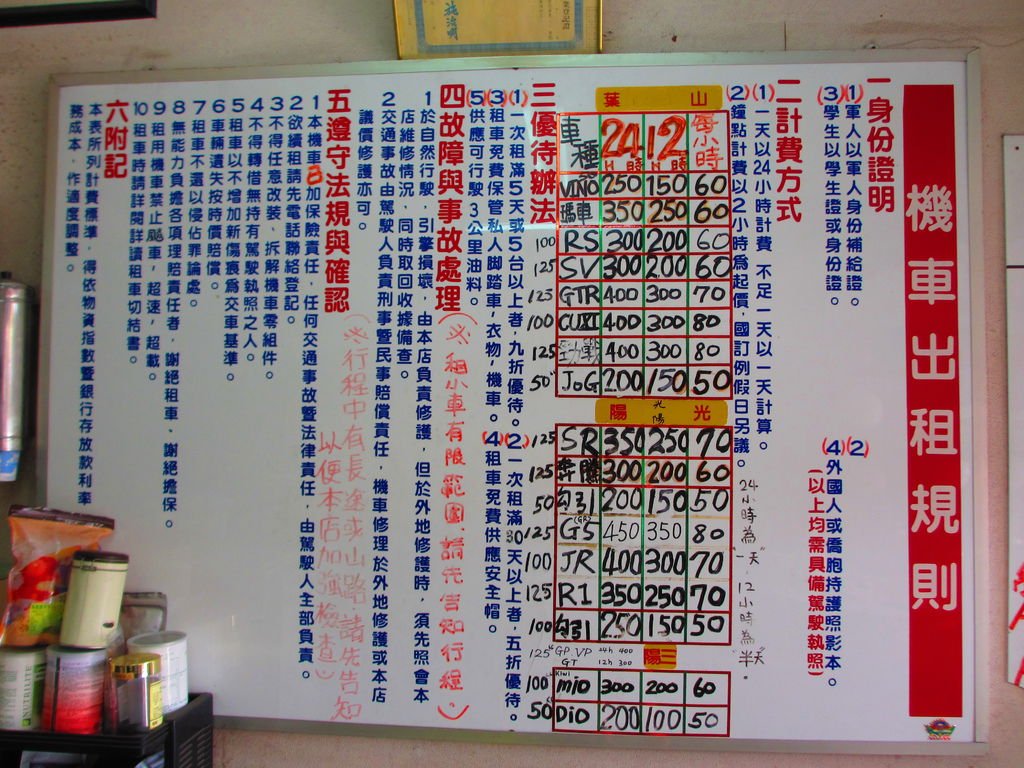 機車出租規則
一身份證明
(1)軍人以軍人身份補給證。
(2)
(3)學生以學生證或身份證。
(4)外國人或僑胞持護照影本。
(以上均需具備駕駛執照)
二計費方式
(1)一天以24小時計費 不足一天以一天計算。
(2)鐘點計費以2小時為起價,國訂例假日另議。
24小時為"一天" 12小時為"半天"
山葉
車種 24H時 12H時 每小時
VINO 250 150 60
瑪車 350 250 60
100 RS 300 200 60
125 SV 300 200 60
125 GTR 400 300 70
100 CUXI 400 300 80
125 勁戰 400 300 80
50 JOG 200 150 50
光陽
光陽
125 SR 350 250 70
125 奔騰 300 200 60
50 勾引 200 150 50
125 GS 450 350 80
100 JR 400 300 70
125 R1 350 250 70
100 勾引 250 150 50
125 GP VP 24h 400
GT 12h 300
三陽
100 KIWI mio 300 200 60
50 Dio 200 100 50
三優待辦法
(1)一次租滿5天或5台以上者,九折優待。
(2)一次租滿30天以上者,五折優待。
(3)租車免費保管私人脚踏車,衣物,機車。
(4)租車免費供應安全帽。
(5)供應可行駛3公里油料。
四故障與事故處理
(※租小車有限範圍,請先告知行經。)
1於自然行駛,引擎損壞,由本店負責修護,但於外地修護時,須先照會本
店維修情況,同時取回收據備查。
2交通事故由駕駛人負責刑事暨民事賠償責任,機車修理於外地修護或本店
議價修護亦可。
五遵守法規與確認
(※行程中有長途或山路,請先告知
以便本店加強檢查)
1本機車已加保險責任,任何交通事故暨法律責任,由駕駛人全部負責。
2欲續租請先電話聯絡登記。
3不得任意改裝、拆解機車零組件。
4不得轉借無持有駕駛執照之人。
5租車以不增加新傷痕為交車基準。
6車輛遺失按時價賠償。
7租車不還以侵佔罪論處。
8無能力負擔各項理賠責任者,謝絕租車、謝絕擔保。
9租用機車禁止飈車,超速,超載。
10租車時請詳閱詳讀租車切結書。
六附記
本表所列計費標準,得依物資指數暨銀行存放款利率
務成本、作適度調整。